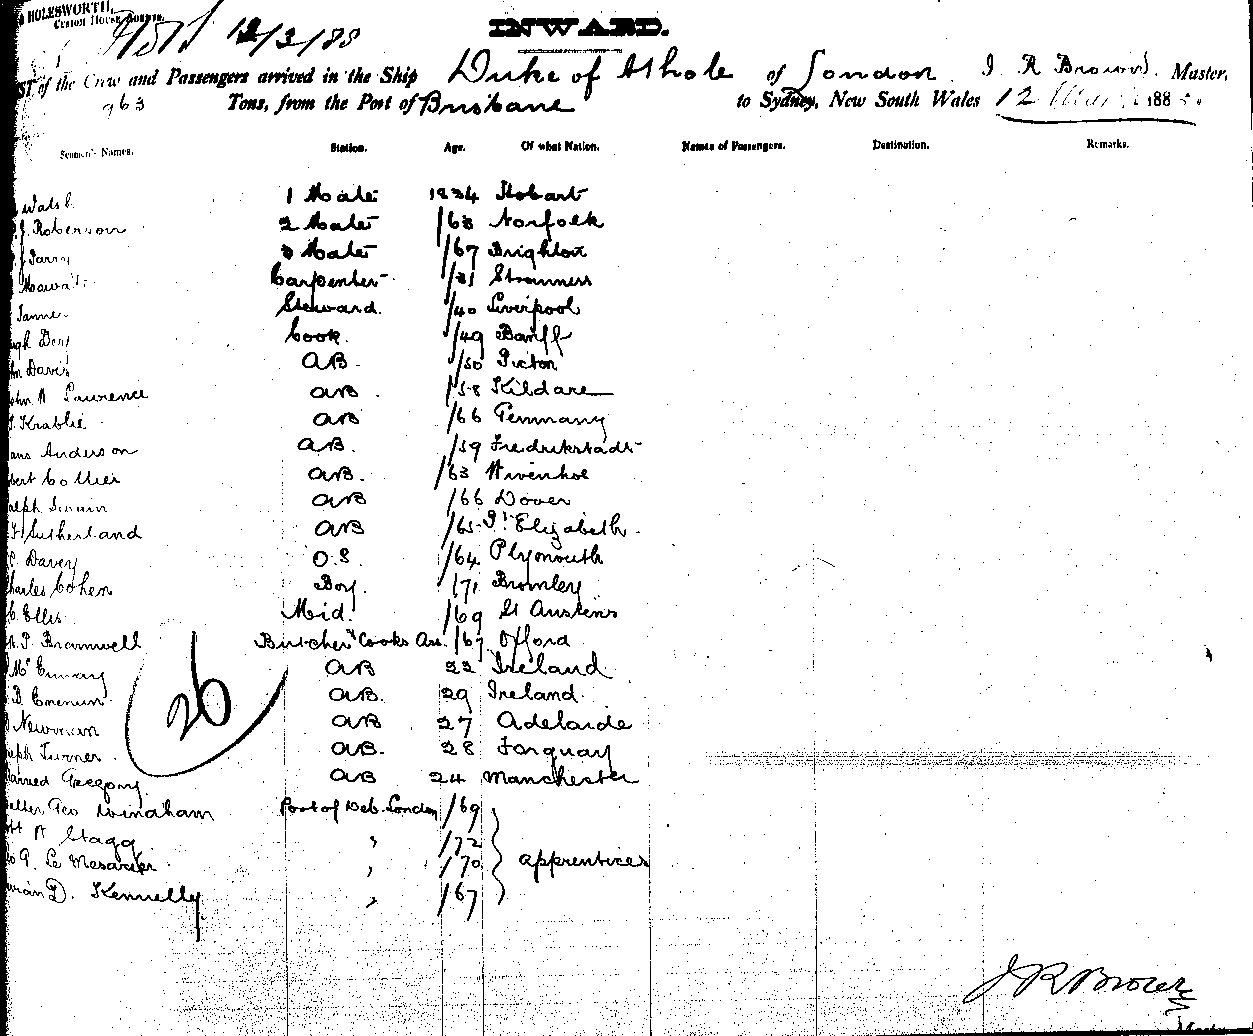 HOLESWORTH,
CUSTOM HOUSE
12/3/88
INWARD.
of the Crew and Passengers arrived in the Ship Duke of Athole of London J R Brown Master,
963 Tons, from the Port of Brisbane to Sydney, New South Wales 12 188
Seamen's Names. Station. Age. Of what Nation. Names of Passengers. Destination. Remarks.
1 Mate 1834 Hobart
J. Roberson 2 Mate /63 Norfolk
3 Mate /67 Brighton
Carpenter /31
Steward. /40 Liverpool
Cook. /49 Banff
Davis AB. /50 Picton
John A Laurence AB. /58 Kildare
AB /66 Germany
Anderson AB. /59 Fredrikstadt
Collier AB. /63 Wivenhoe
AB /66 Dover
Sutherland AB /65 Pt Elizabeth.
Davey O.S. /64 Plymouth
Charles Cohen Boy. /71 Bromley
Ellis Mid. /69 St Austens
P. Bramwell Butcher & Cooks Ass. /67 Offord
AB 22 Ireland
AB. 29 Ireland.
26
AB 27 Adelaide
Turner. AB. 28 Torquay
Gregory AB 24 Manchester
Geo Windham Port of Deb. London /69
A Stagg " /72
Le Mesurier " /70 apprentices
D. Kennelly. " /67
J R Brown